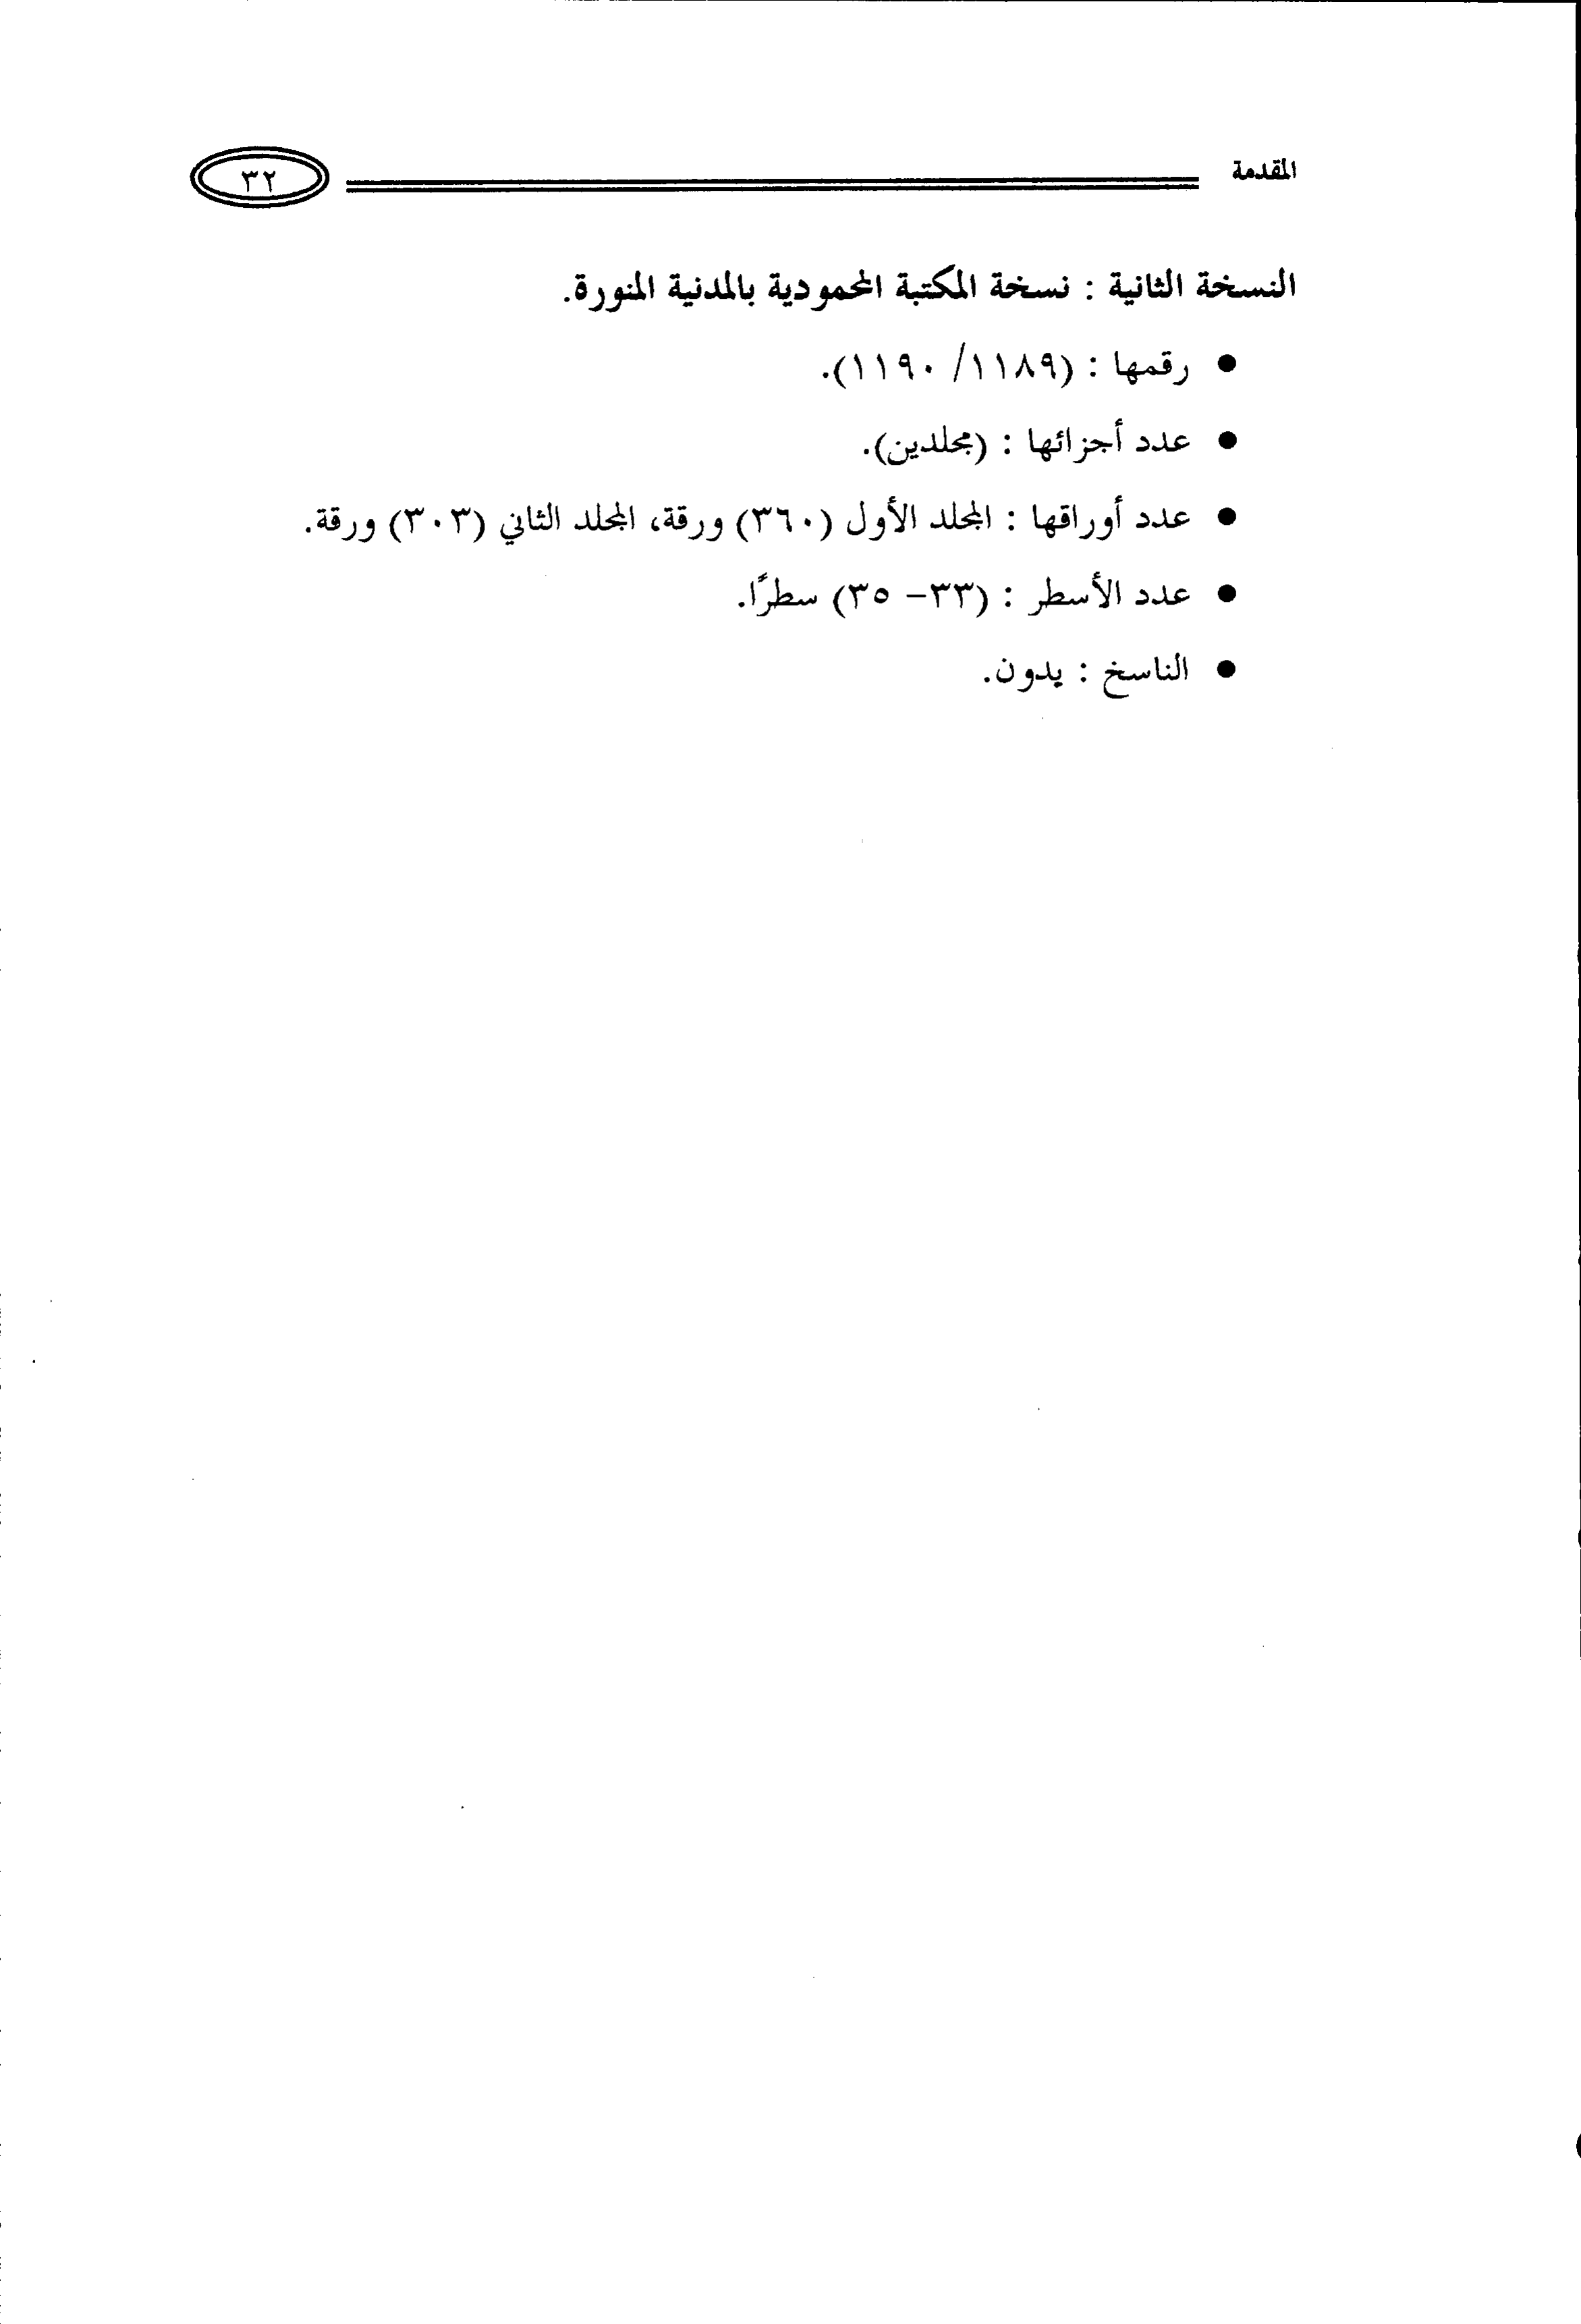 المقدمة ٣٢
النسخة الثانية : نسخة المكتبة المحمودية بالمدنية المنورة.
● رقمها : (١١٨٩/ ١١٩٠).
● عدد أجزائها : (مجلدين).
● عدد أوراقها : المجلد الأول (٣٦٠) ورقة، المجلد الثاني (٣٠٣) ورقة.
● عدد الأسطر : (٣٣- ٣٥) سطرًا.
● الناسخ : يدون.